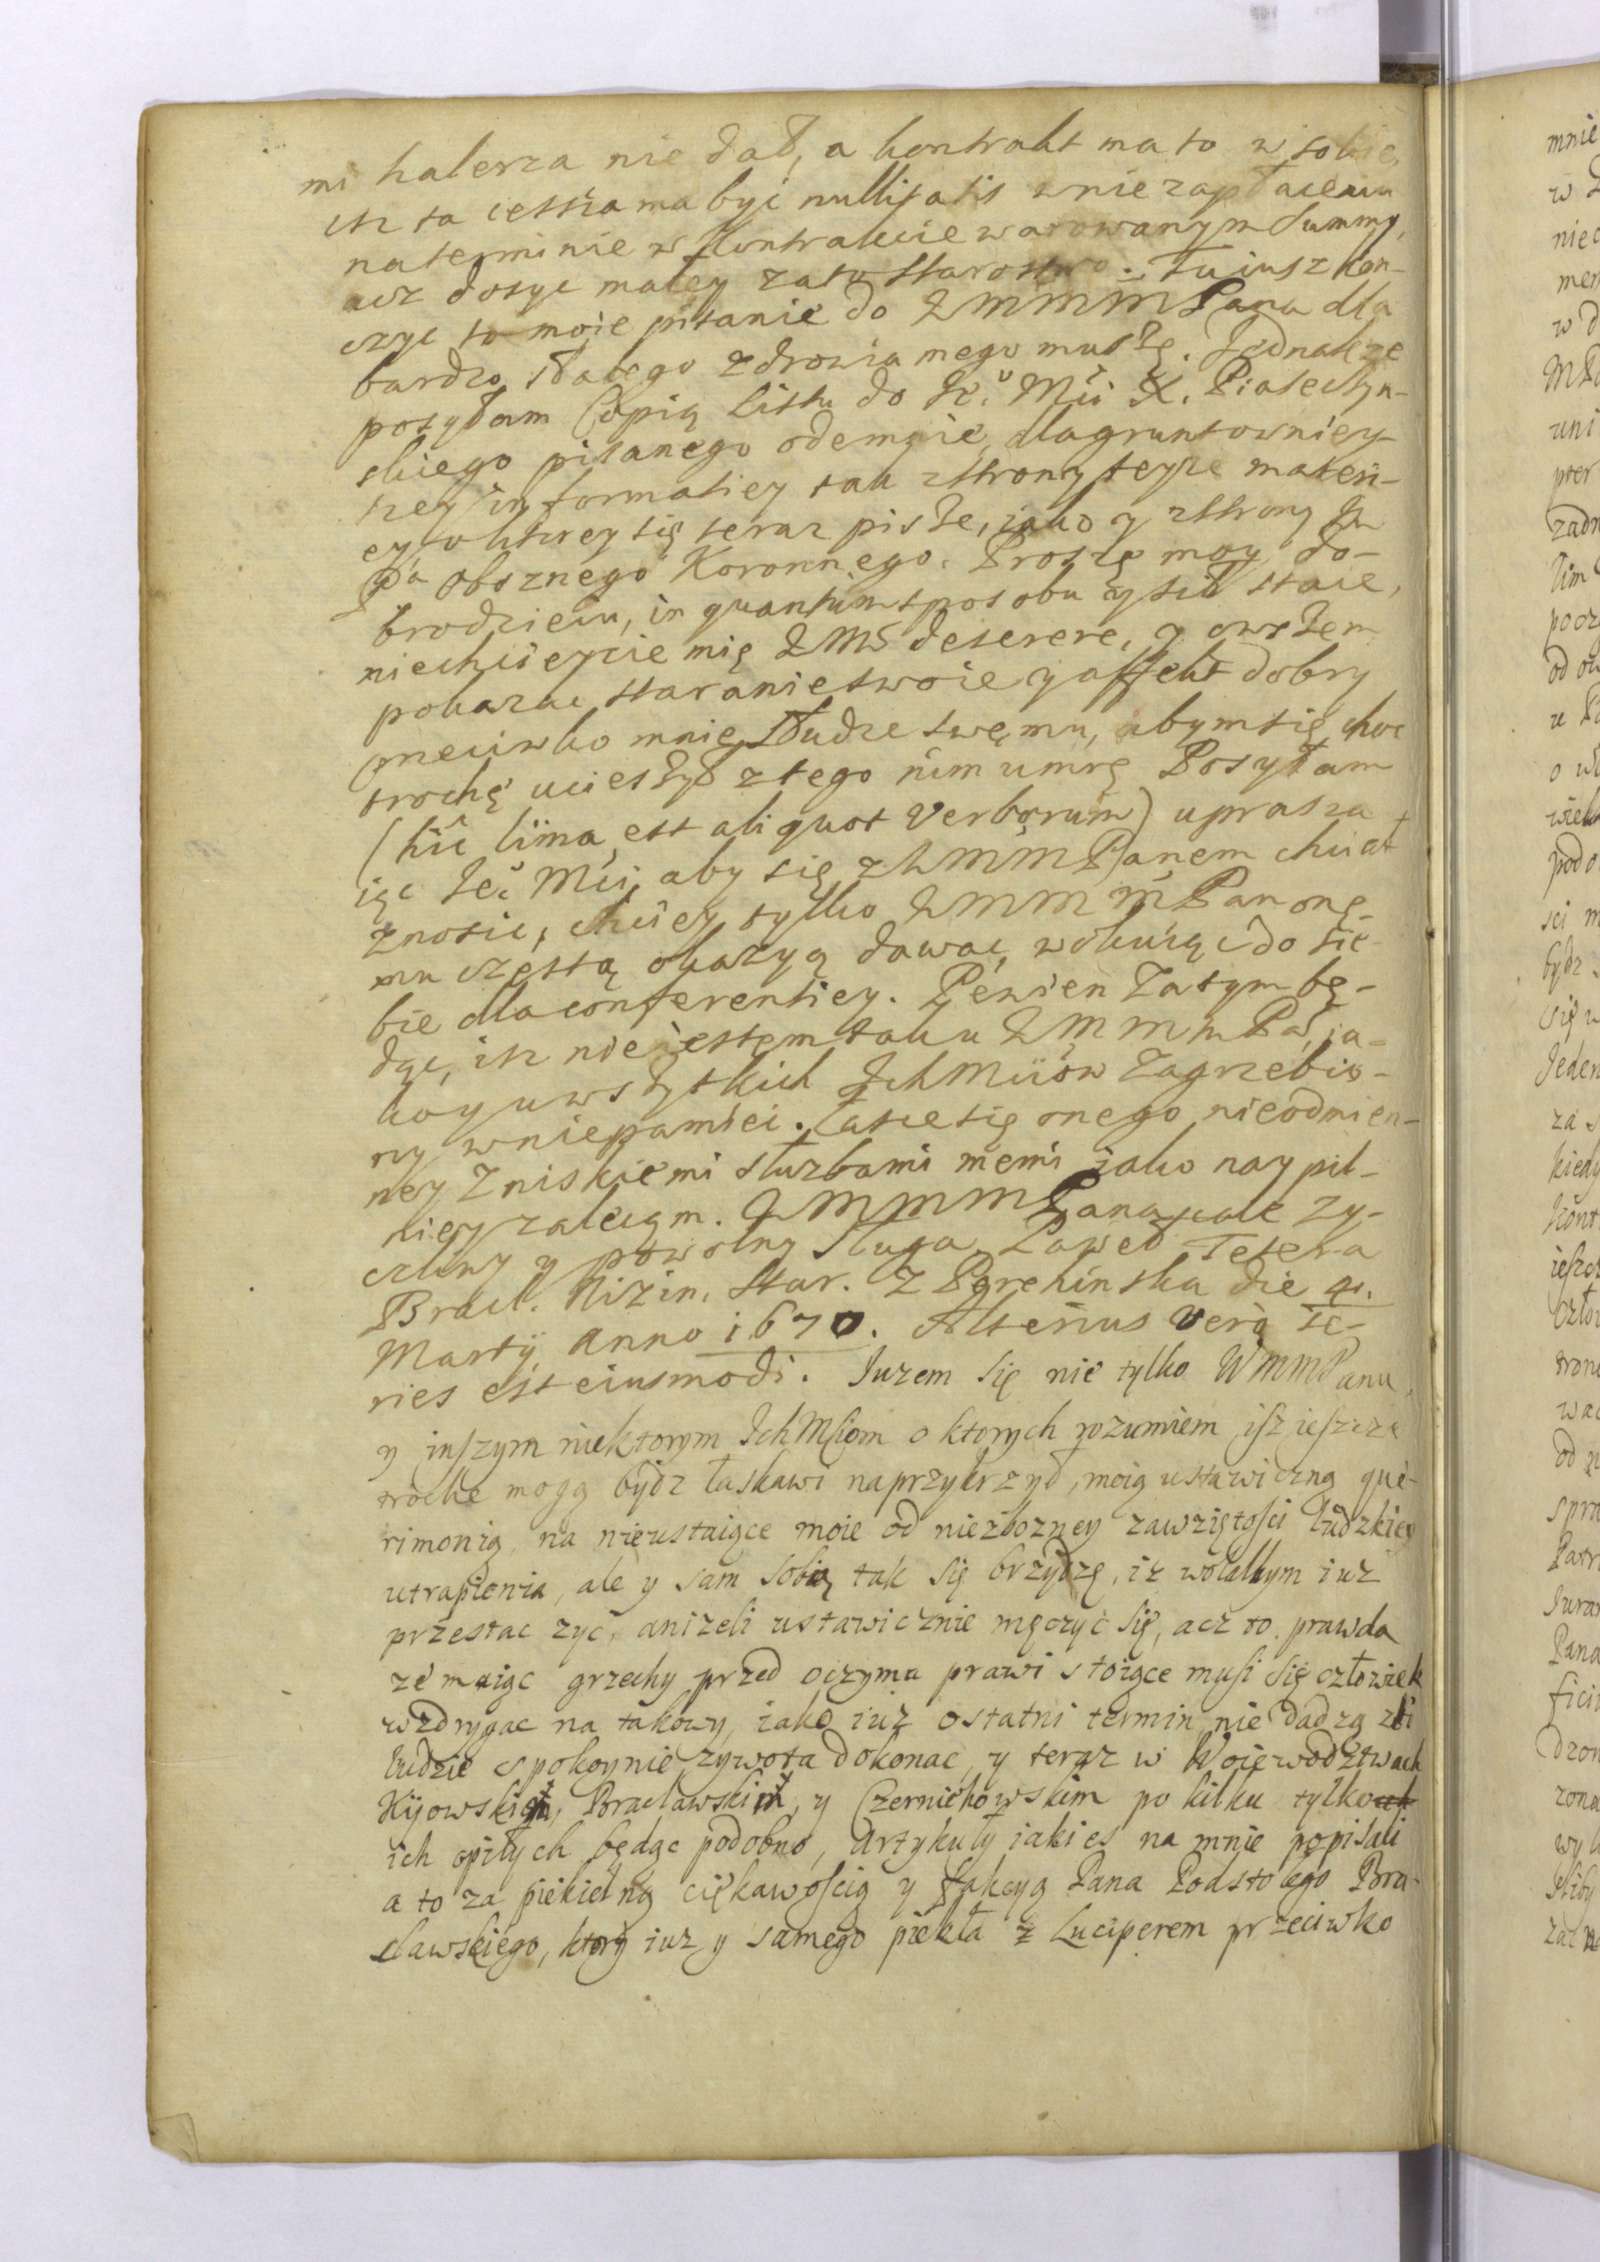 mi halerza nie dał, a kontrakt ma to w sobie,
isz ta cessia ma być nullitatis w niezapłaceniu
na terminie w Kontrakcie warowanym Summy,
acz dosyc małey za to Starostwo. Tu iusz kon-
czyc to moie pisanie do WMMMPana dla
bardzo słabego zdrowia mego muszę. Jednakże
posyłam Copią Listu do Je° Mci X. Piaseczyn-
skiego pisanego odemnie, dla gruntowniey-
szey informatiey tak zstrony teyze materi-
ey o ktorey się teraz pisze, iako y zstrony Jm
Pa Oboznego Koronnego. Proszę moy do-
brodzieiu, in quantum sposobu y sił staie,
niechcieycie mię WMć deserere, y owszem
pokazac staranie swoie y affekt dobry
przeciwko mnie słudze swemu, abym się choc
trochę ucieszył z tego nim umrę Posyłam
(hîc lima est aliquot verborum) uprasza
iąc Je° Mci, aby się z WMMPanem chciał
znosic, chciey tylko WMMMPan one-
mu częstą okazyą dawac, wokuiąc do sie-
bie dla conferentiey. Pewien Zatym bę-
dąc, isz nie iestem tak u WMMMPa, ia-
ko y u wszytkich IchMciów Zagrzebio-
ny w niepamięci. Łasce się onego nieodmien-
ney Z niskiemi służbami memi iako naypil-
niey zalecam. WMMMPana cale Zy-
czliwy y powolny Sługa Paweł Tetera
Bracł. Nizin. Star. Z Perehinska die 4.
Martÿ Anno 1670. Alterius verò se-
ries est eiusmodi. Juzem się nie tylko WMMPanu,
y inszym niektorym IchMsciom o ktorych rozumiem isz ieszcze
troche mogą bydz łaskawi naprzykrzył, moią ustawiczną que-
rimonią, na nieustaiące moie od niezbozney zawziętosci ludzkiey
utrapienia, ale y sam sobią tak się brzydzę, iz wolałbym iuz
przestac zyć, anizeli ustawicznie męczyć się, acz to prawda
ze maiąc grzechy przed oczyma prawi stoiące musi się człowiek
wzdrygac na takowy, iako iuż ostatni termin, nie dadzą zli
ludzie spokoynie zywota dokonac, y teraz w Woiewodztwach
Kijowskim, Bracławskim, y Czernichowskim po kilku tylko
ich opiłych będąc podobno, artykuły iakies na mnie popisali
a to za piekielną ciękawoscią y fakcyą Pana Podstolego Bra-
cławskiego, ktory iuz y samego piekła z Luciperem przeciwko